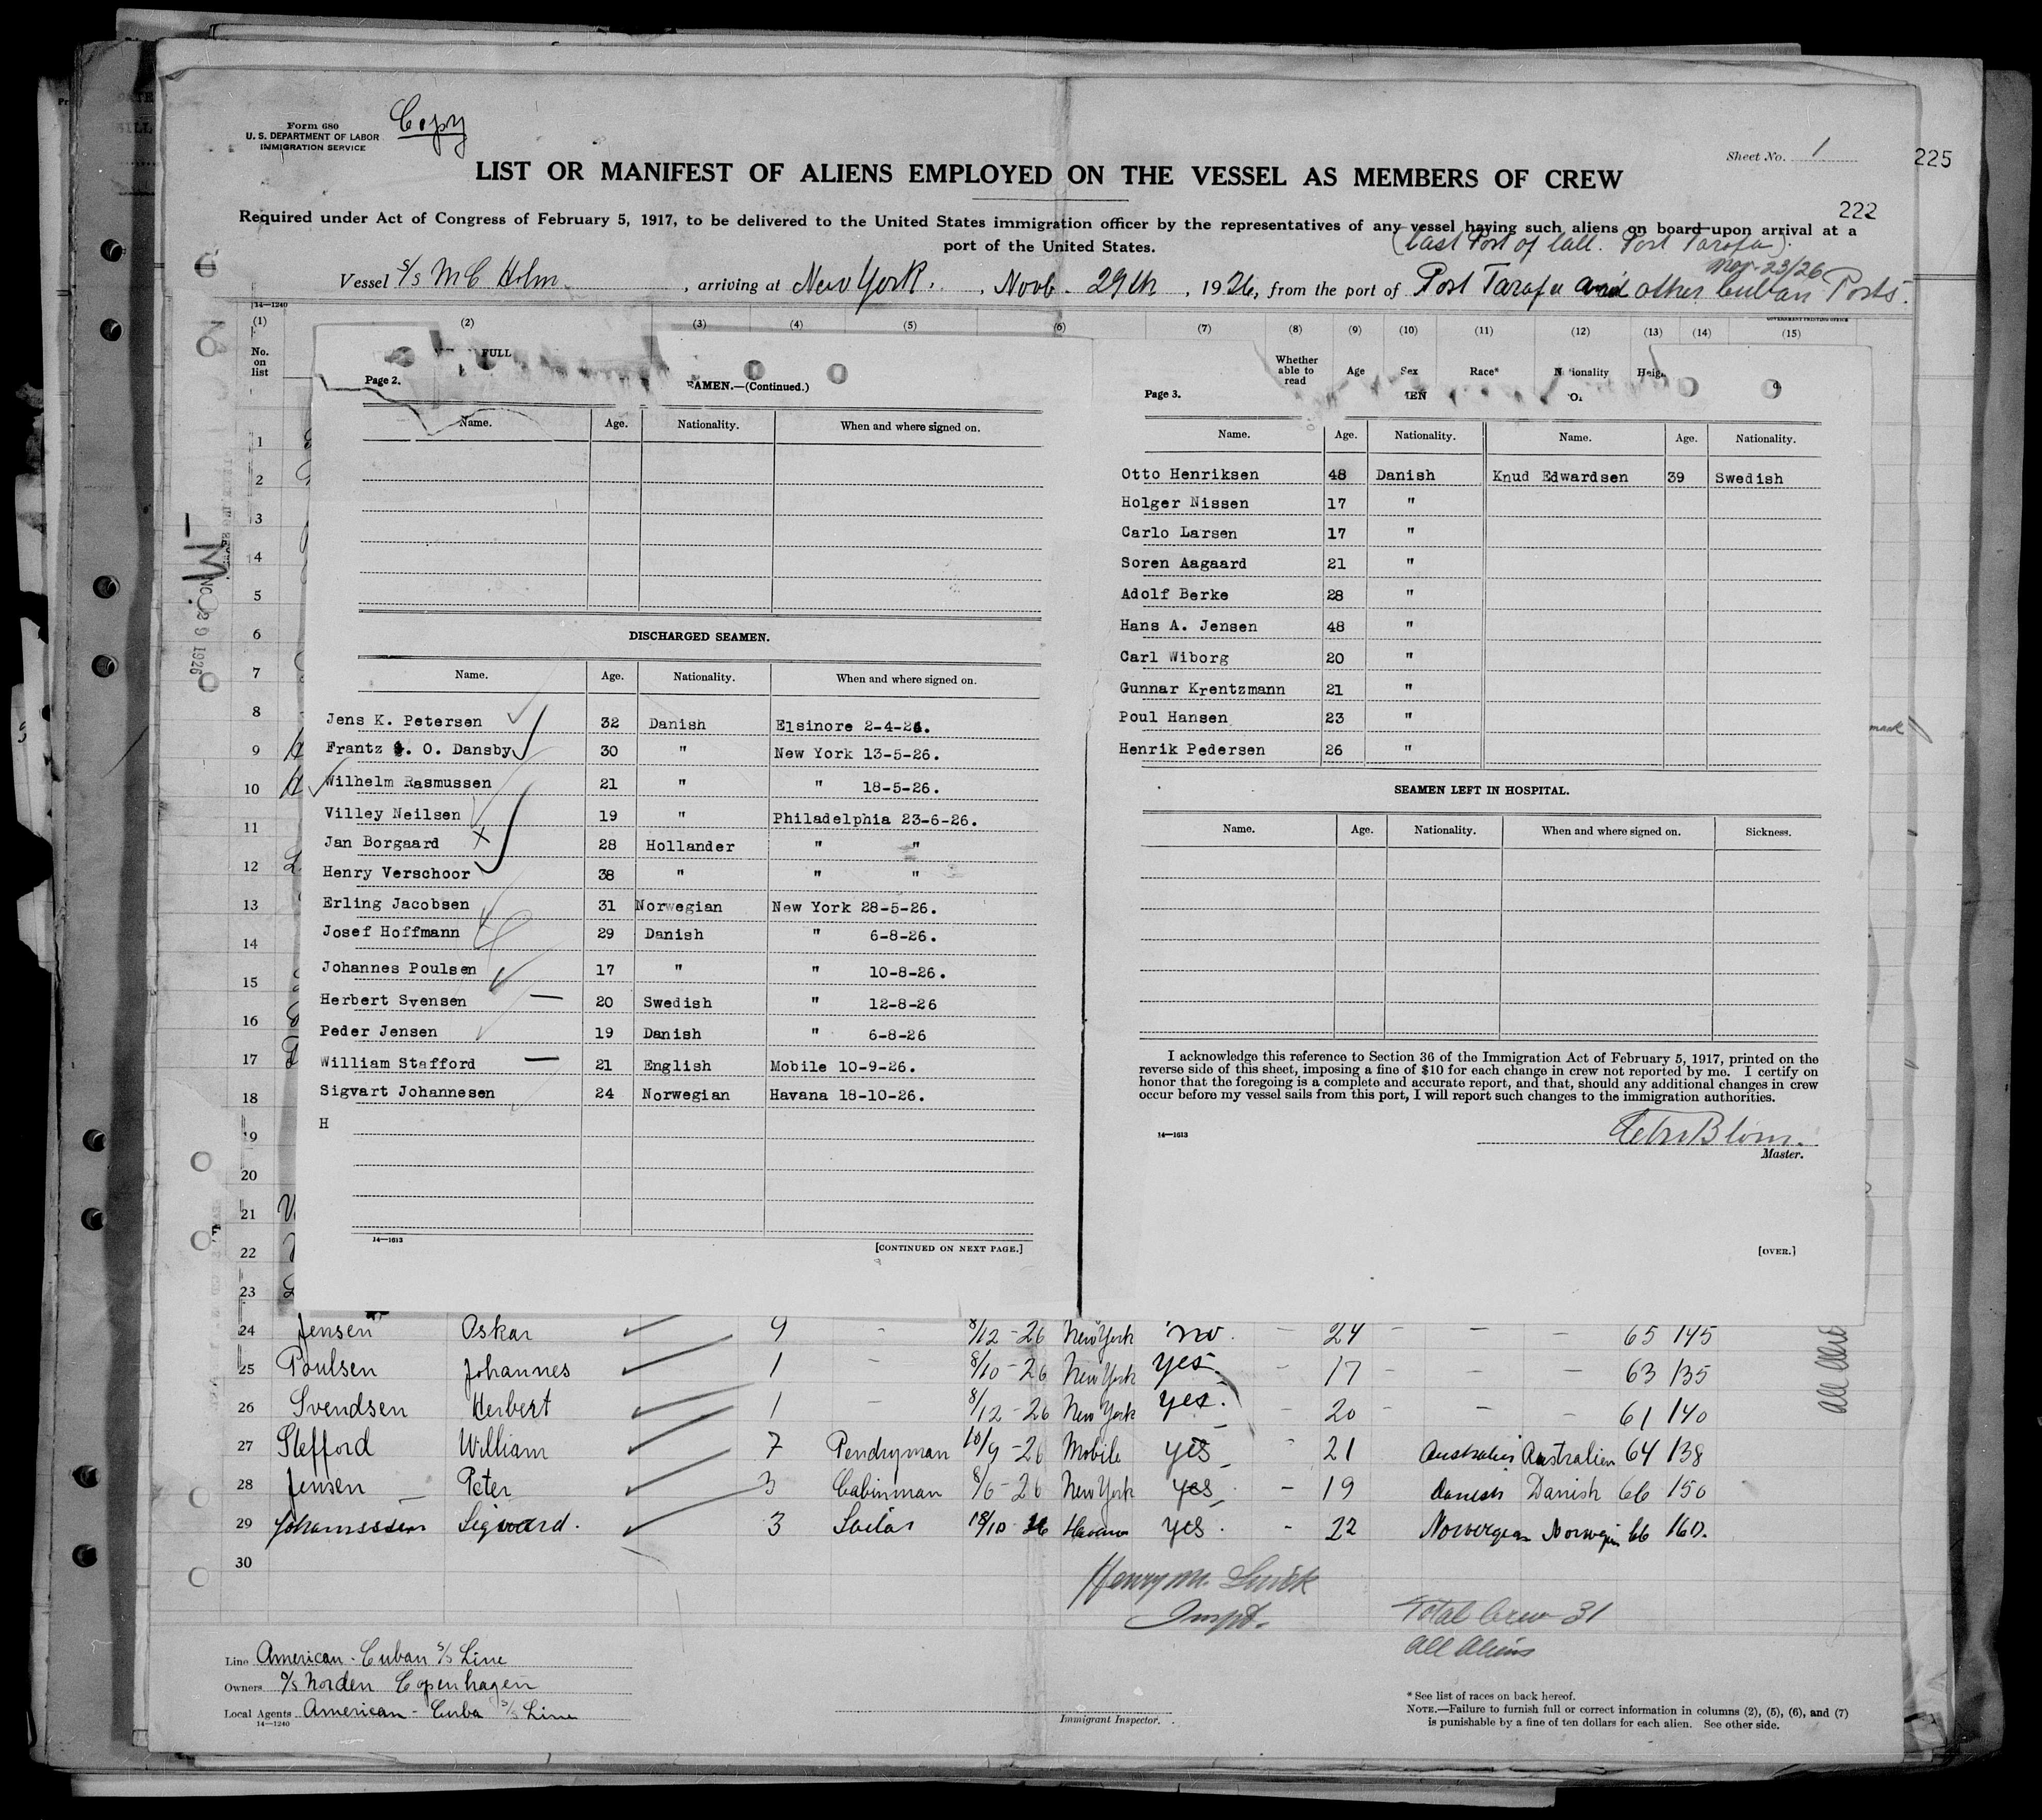 Form 680
U. S. DEPARTMENT OF LABOR
IMMIGRATION SERVICE
Copy
Sheet No. 1
225
LIST OR MANIFEST OF ALIENS EMPLOYED ON THE VESSEL AS MEMBERS OF CREW
222
Required under Act of Congress of February 5, 1917, to be delivered to the United States immigration officer by the representatives of any vessel having such aliens on board upon arrival at a
port of the United States.
(Last Port of Call. Port Tarafa).
Nov-23/26
Vessel S/S M C Holm, arriving at New York, Novb. 29th, 1926, from the port of Port Tarafa and other Cuban Ports.
14—1240
GOVERNMENT PRINTING OFFICE
(1) (2) (3) (4) (5) (6) (7) (8) (9) (10) (11) (12) (13) (14) (15)
No. on list
FULL
Whether able to read
Age
Sex
Race*
NO. 29 1926
Page 2.
EAMEN.—(Continued.)
Name. Age. Nationality. When and where signed on.
DISCHARGED SEAMEN.
Name. Age. Nationality. When and where signed on.
Jens K. Petersen 32 Danish Elsinore 2-4-26.
Frantz O. Dansby 30 " New York 13-5-26.
Wilhelm Rasmussen 21 " " 18-5-26.
Villey Neilsen 19 " Philadelphia 23-6-26.
Jan Borgaard X 28 Hollander " "
Henry Verschoor 38 " " "
Erling Jacobsen 31 Norwegian New York 28-5-26.
Josef Hoffmann 29 Danish " 6-8-26.
Johannes Poulsen 17 " " 10-8-26.
Herbert Svensen 20 Swedish " 12-8-26
Peder Jensen 19 Danish " 6-8-26
William Stafford 21 English Mobile 10-9-26.
Sigvart Johannesen 24 Norwegian Havana 18-10-26.
H
14—1613
[CONTINUED ON NEXT PAGE.]
Page 3.
MEN
Name. Age. Nationality. Name. Age. Nationality.
Otto Henriksen 48 Danish Knud Edwardsen 39 Swedish
Holger Nissen 17 "
Carlo Larsen 17 "
Soren Aagaard 21 "
Adolf Berke 28 "
Hans A. Jensen 48 "
Carl Wiborg 20 "
Gunnar Krentzmann 21 "
Poul Hansen 23 "
Henrik Pedersen 26 "
SEAMEN LEFT IN HOSPITAL.
Name. Age. Nationality. When and where signed on. Sickness.
I acknowledge this reference to Section 36 of the Immigration Act of February 5, 1917, printed on the
reverse side of this sheet, imposing a fine of $10 for each change in crew not reported by me. I certify on
honor that the foregoing is a complete and accurate report, and that, should any additional changes in crew
occur before my vessel sails from this port, I will report such changes to the immigration authorities.
14—1613
Blom.
Master.
[OVER.]
1
2
3
4
5
6
7
8
9
10
11
12
13
14
15
16
17
18
19
20
21
22
23
24 Jensen Oskar 9 - 8/12 - 26 New York no. - 24 - - - 65 145
25 Poulsen Johannes 1 - 8/10 - 26 New York yes - 17 - - - 63 135
26 Svendsen Herbert 1 - 8/12 - 26 New York yes. - 20 - - - 61 140
27 Stefford William 7 Pendryman 10/9 - 26 Mobile yes - 21 Australien Australien 64 138
28 Jensen Peter 3 Cabinman 8/6 - 26 New York yes - 19 Danish Danish 66 150
29 Johanssen Sigvard. 3 Sailor 18/10 26 Havana yes. - 22 Norwegian Norwegin 66 160.
30
Henry M.
Inspt.
Total Crew 31
All Aliens
Line American-Cuban S/S Line
Owners Norden Copenhagen
Local Agents American-Cuba S/S Line
14—1240
Immigrant Inspector.
* See list of races on back hereof.
NOTE.—Failure to furnish full or correct information in columns (2), (5), (6), and (7)
is punishable by a fine of ten dollars for each alien. See other side.